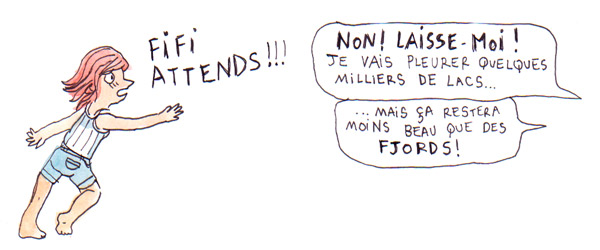 FIFI
ATTENDS!!!
NON! LAISSE-MOI!
JE VAIS PLEURER QUELQUES
MILLIERS DE LACS...
...MAIS ÇA RESTERA
MOINS BEAU QUE DES
FJORDS!